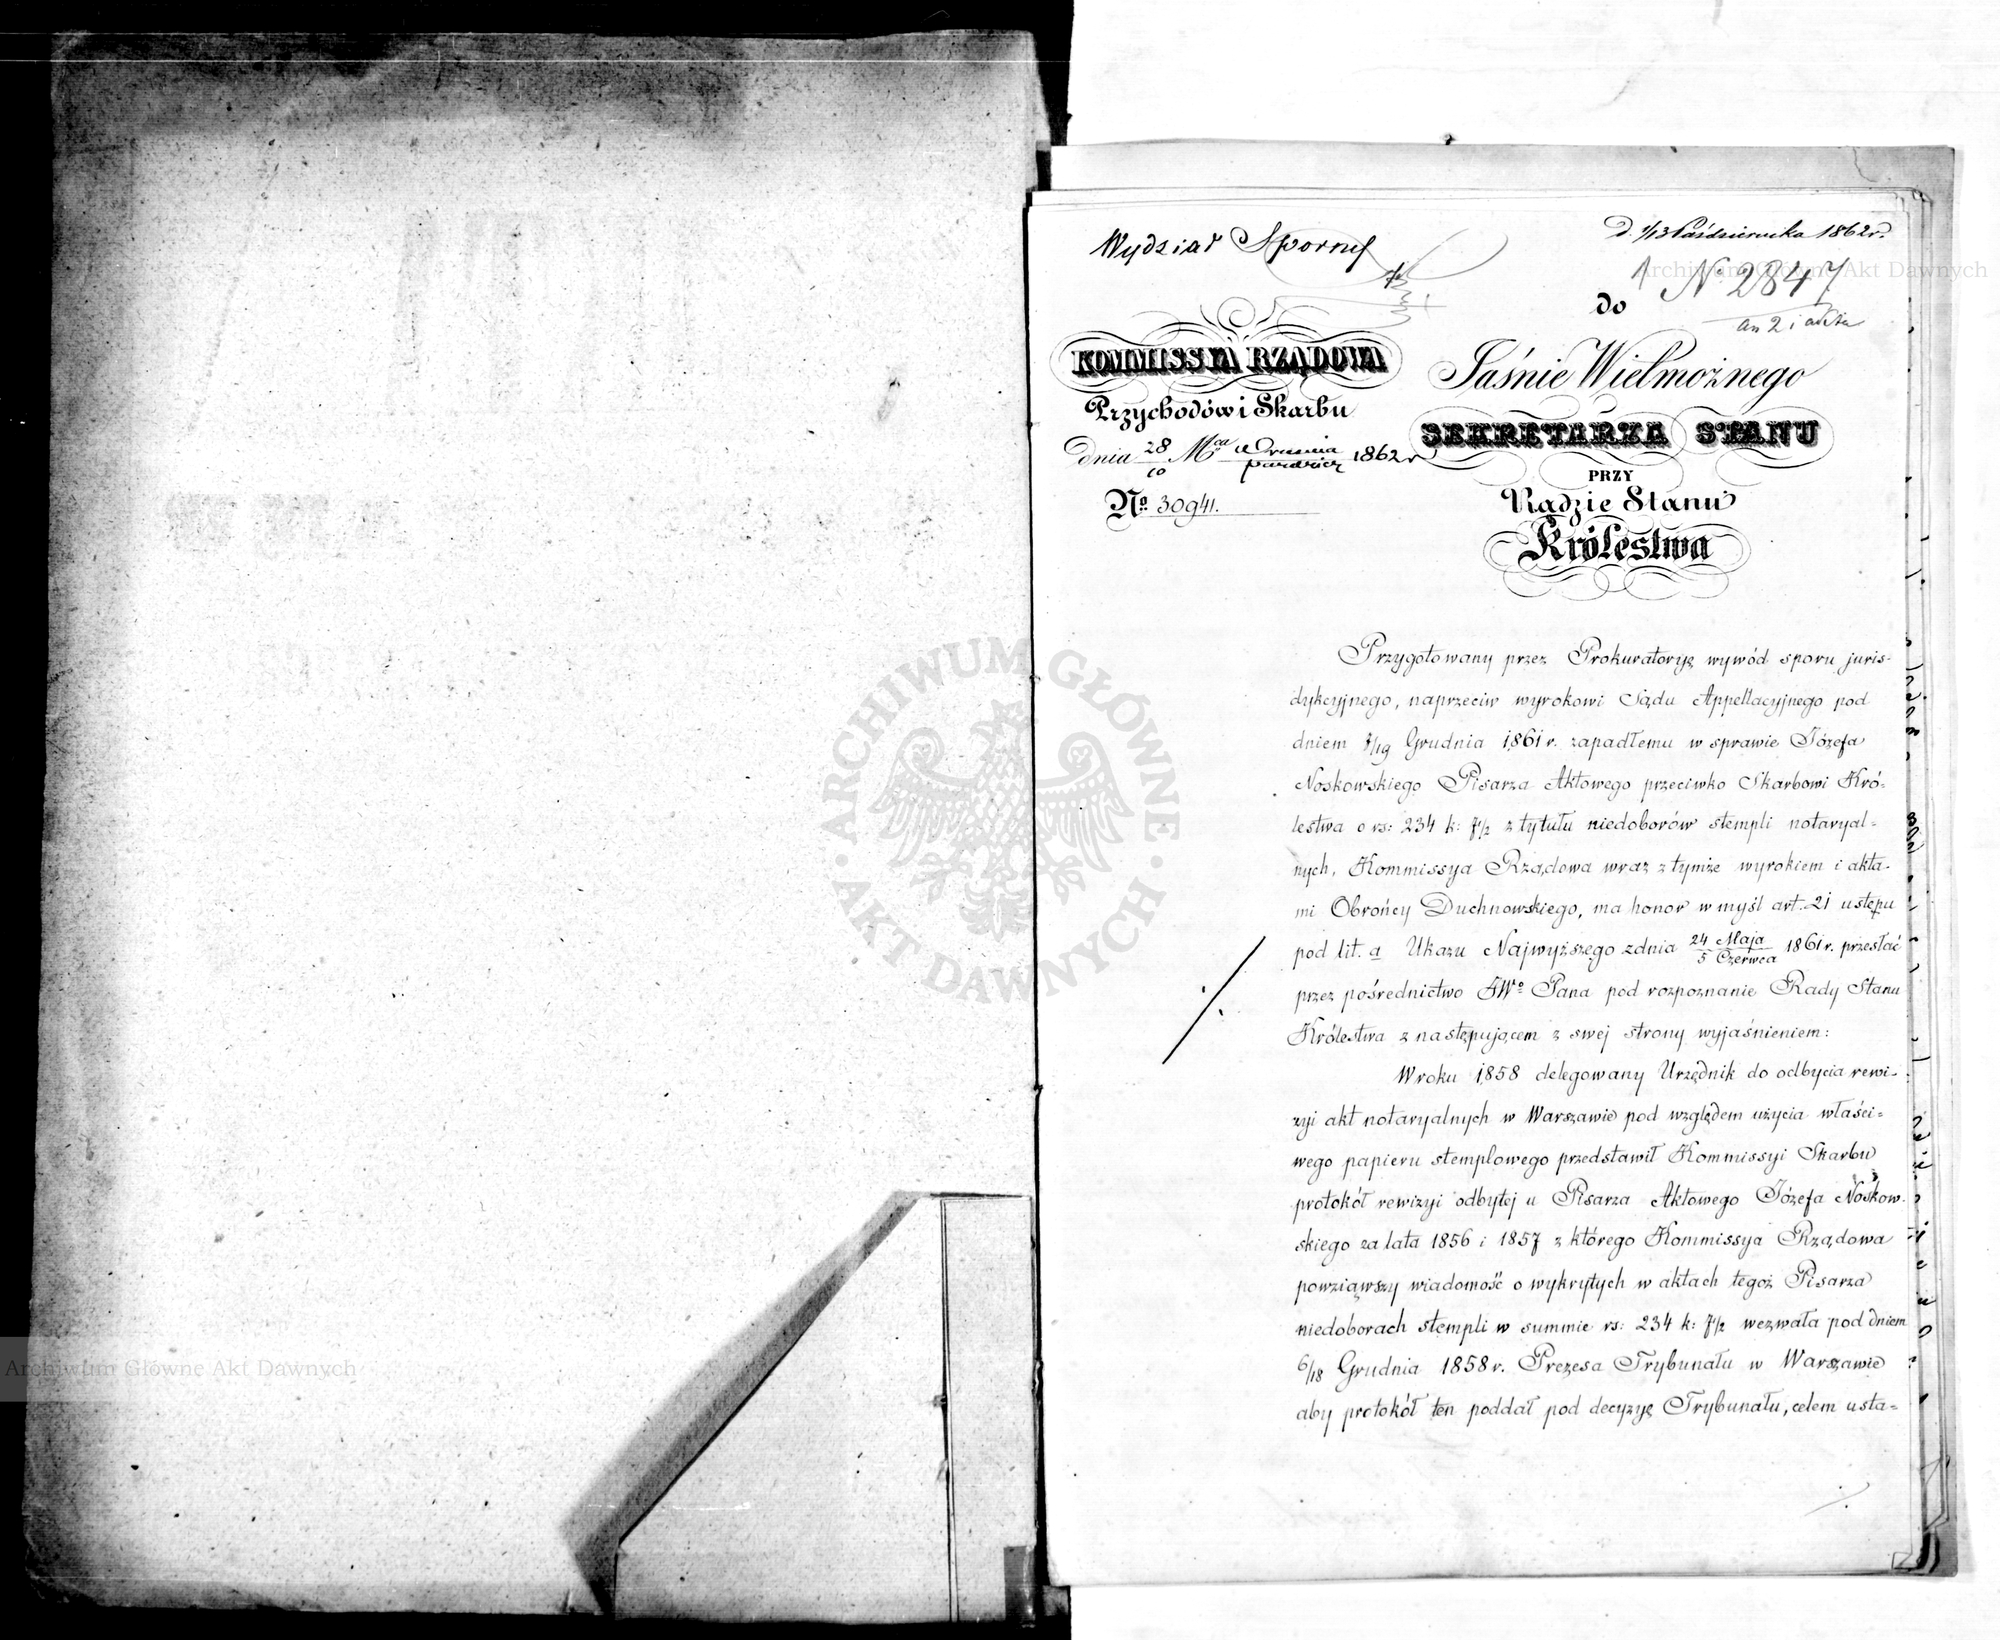 Wydział Sporny
D. 1/13 Października 1862 r.
1 N 2847
an 2 i akta
do
KOMMISSYA RZĄDOWA
Przychodów i Skarbu
dnia 28/10 Mca Września/paździer 1862 r
No. 30941.
Jaśnie Wielmożnego
SEKRETARZA STANU
PRZY
Radzie Stanu
Królestwa
Przygotowany przez Prokuratoryę wywód sporu juris-
dykcyjnego, naprzeciw wyrokowi Sądu Appellacyjnego pod
dniem 7/19 Grudnia 1861 r. zapadłemu w sprawie Józefa
Noskowskiego Pisarza Aktowego przeciwko Skarbowi Kró-
lestwa o rs: 234 k: 7½ z tytułu niedoborów stempli notaryal-
nych, Kommissya Rządowa wraz z tymże wyrokiem i akta-
mi Obrońcy Duchnowskiego, ma honor w myśl art. 21 ustępu
pod lit. a Ukazu Najwyższego z dnia 24 Maja/5 Czerwca 1861 r. przesłać
przez pośrednictwo JWo Pana pod rozpoznanie Rady Stanu
Królestwa z następującem z swej strony wyjaśnieniem:
W roku 1858 delegowany Urzędnik do odbycia rewi-
zyi akt notaryalnych w Warszawie pod względem użycia właści-
wego papieru stemplowego przedstawił Kommissyi Skarbu
protokół rewizyi odbytej u Pisarza Aktowego Józefa Noskow-
skiego za lata 1856 i 1857 z którego Kommissya Rządowa
powziąwszy wiadomość o wykrytych w aktach tegoż Pisarza
niedoborach stempli w summie rs: 234 k: 7½ wezwała pod dniem
6/18 Grudnia 1858 r. Prezesa Trybunału w Warszawie
aby protokół ten poddał pod decyzyę Trybunału, celem usta-
Archiwum Główne Akt Dawnych
Archiwum Główne Akt Dawnych
ARCHIWUM GŁÓWNE
AKT DAWNYCH